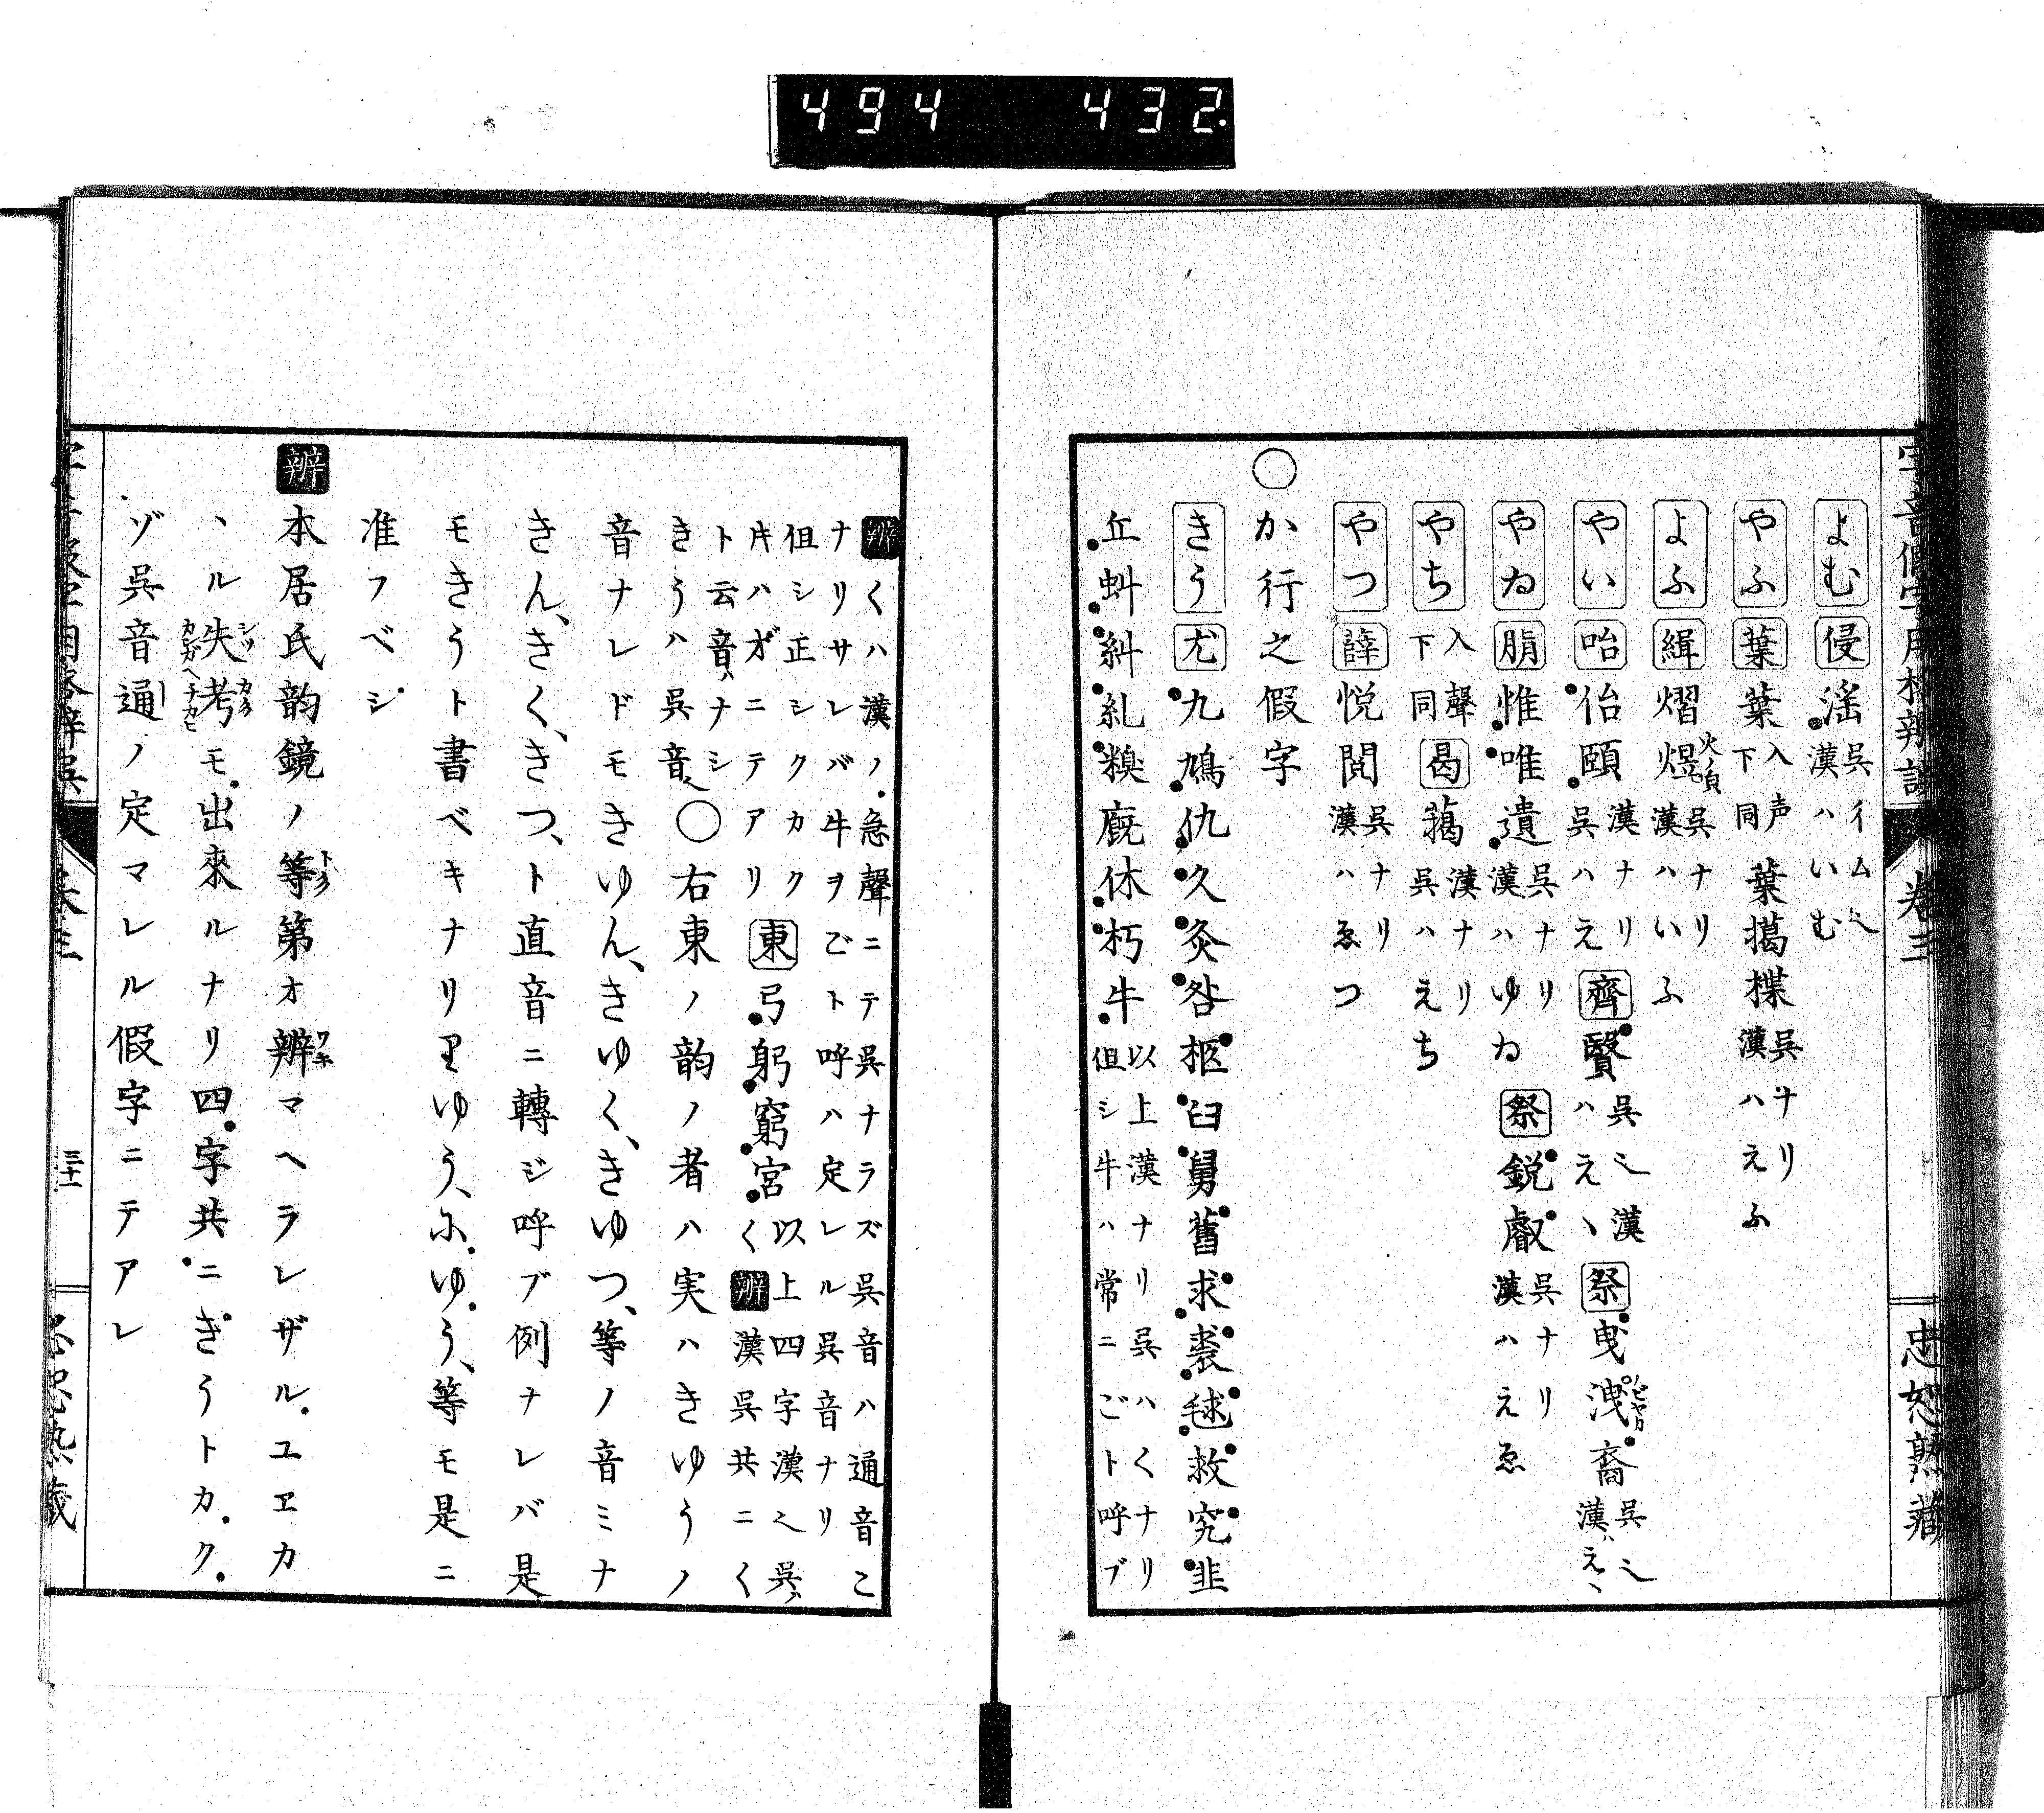 494 432
字音假字用格辨誤 卷三 忠恕熟藏
よむ 侵 淫 呉イム也 漢ハいむ
やふ 葉 葉 入声下同 葉擖楪 呉ナリ 漢ハえふ
よふ 緝 熠煜 火ノ皃 呉ナリ 漢ハいふ
やい 咍 佁頤 漢ナリ 呉ハえ 齊 賢 呉也 漢ハえヽ 祭 曳洩裔 呉也 漢ハえヽ
やゐ 脂 惟唯遺 呉ナリ 漢ハゆゐ 祭 鋭叡 呉ナリ 漢ハえゑ
やち 入聲下同 曷 擖 漢ナリ 呉ハえち
やつ 薛 悦閲 呉ナリ 漢ハゑつ
○か行之假字
きう 尤 九鳩仇久灸咎柩臼舅舊求裘毬救究韭
丘虯糾糺糗廐休朽牛 以上漢ナリ呉ハくナリ 但シ牛ハ常ニごト呼ブ
辨 くハ漢ノ急聲ニテ呉ナラズ呉音ハ通音こ
ナリサレバ牛ヲごト呼ハ定レル呉音ナリ
但シ正シクカク
キハオニテアリ 東 弓躬窮宮 以上四字漢也呉ハ
ト云音ハナシ く 辨 漢呉共ニく
きうハ呉音也 ○右東ノ韵ノ者ハ実ハきゆうノ
音ナレドモきゆん、きゆく、きゆつ、等ノ音ミナ
きん、きく、きつ、ト直音ニ轉ジ呼ブ例ナレバ是
モきうト書ベキナリりゆう、にゆう、等モ是ニ
准フベシ
辨 本居氏韵鏡ノ等第オ辨マヘラレザルユヱカ
ヽル失考モ出來ルナリ四字共ニぎうトカク
ゾ呉音通ノ定マレル假字ニテアレ